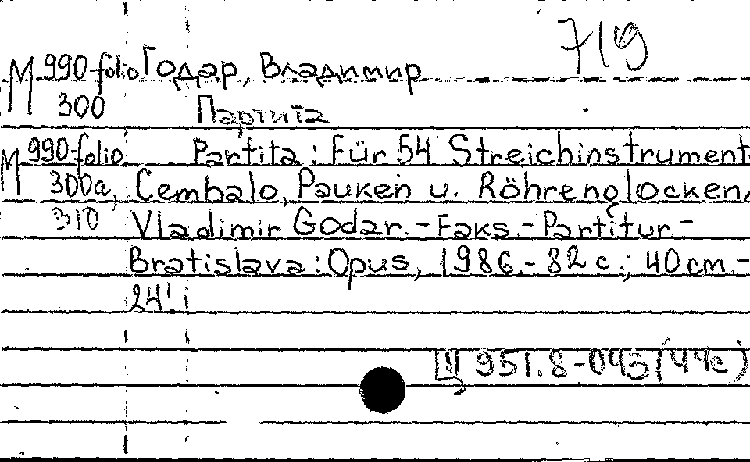 719
М 990 folio Годар, Владимир
300 Партита
М 990 folio Partita : Für 54 Streichinstrument
300a, Cembalo, Pauken u. Röhrenglocken,
310 Vladimir Godar. - Faks. - Partitur -
Bratislava : Opus, 1986. - 32 с. ; 40 cm. -
24'
Ц 951.8-043 (44с)